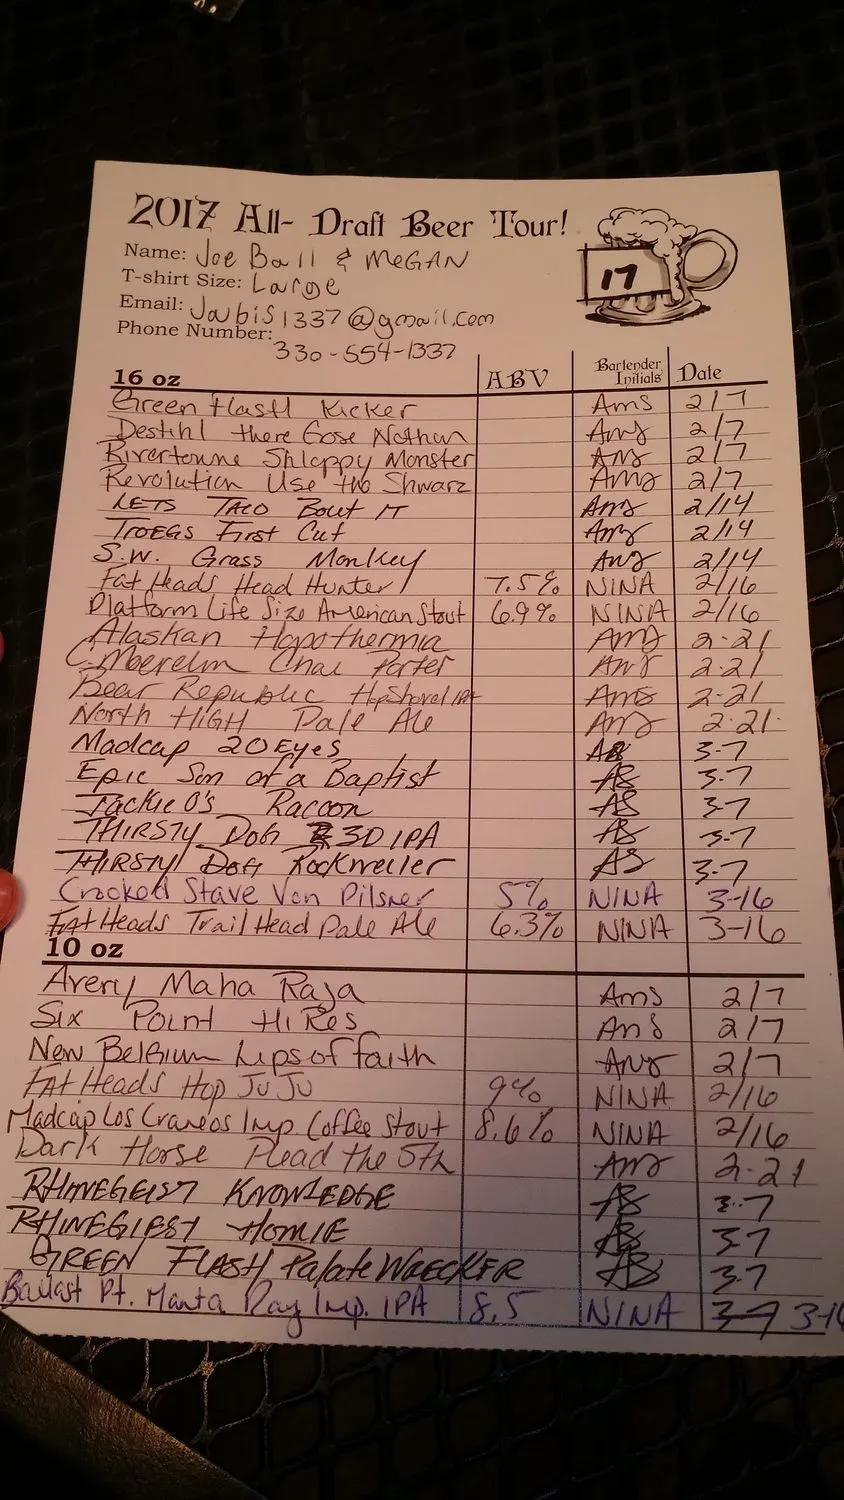 2017 All- Draft Beer Tour!
Name: Joe Ball & MeGAN
17
T-shirt Size: Large
Email: Jabis1337@gmail.com
Phone Number:
330-554-1337
16 oz ABV Bartender Initials Date
Green Flash Kicker Ams 2/7
Destihl there Gose Nathun Ams 2/7
Rivertowne Shloppy Monster Ams 2/7
Revolution Use the Shwarz Ams 2/7
LETS TACO Bout IT Ams 2/14
TROEGS First Cut Ams 2/14
S.W. Grass Monkey Ams 2/14
Fat Heads Head Hunter 7.5% NINA 2/16
Platform Life Size American Stout 6.9% NINA 2/16
Alaskan Hopothermia Ams 2-21
Chai Porter Ams 2-21
Bear Republic HopShovel IPA Ams 2-21
North HIGH Pale Ale Ams 2-21
Madcap 20 Eyes AS 3-7
Epic Son of a Baptist AS 3-7
Jackie O's Racoon AS 3-7
THIRSTY DOG 3D IPA AS 3-7
THIRSTY DOG Rockweiler AS 3-7
Crooked Stave Von Pilsner 5% NINA 3-16
Fat Heads Trail Head Pale Ale 6.3% NINA 3-16
10 oz
Avery Maha Raja Ams 2/7
Six Point HiRes Ams 2/7
New Belgium Lips of faith Ams 2/7
Fat Heads Hop JuJu 9% NINA 2/16
Madcap Los Craneos Imp. Coffee Stout 8.6% NINA 2/16
Dark Horse Plead the 5th Ams 2-21
RHINEGEIST KNOWLEDGE AS 3-7
RHINEGIEST HOMIE AS 3-7
GREEN FLASH Palate WRECKER AS 3-7
Ballast Pt. Manta Ray Imp. IPA 8.5 NINA 3-9 3-16